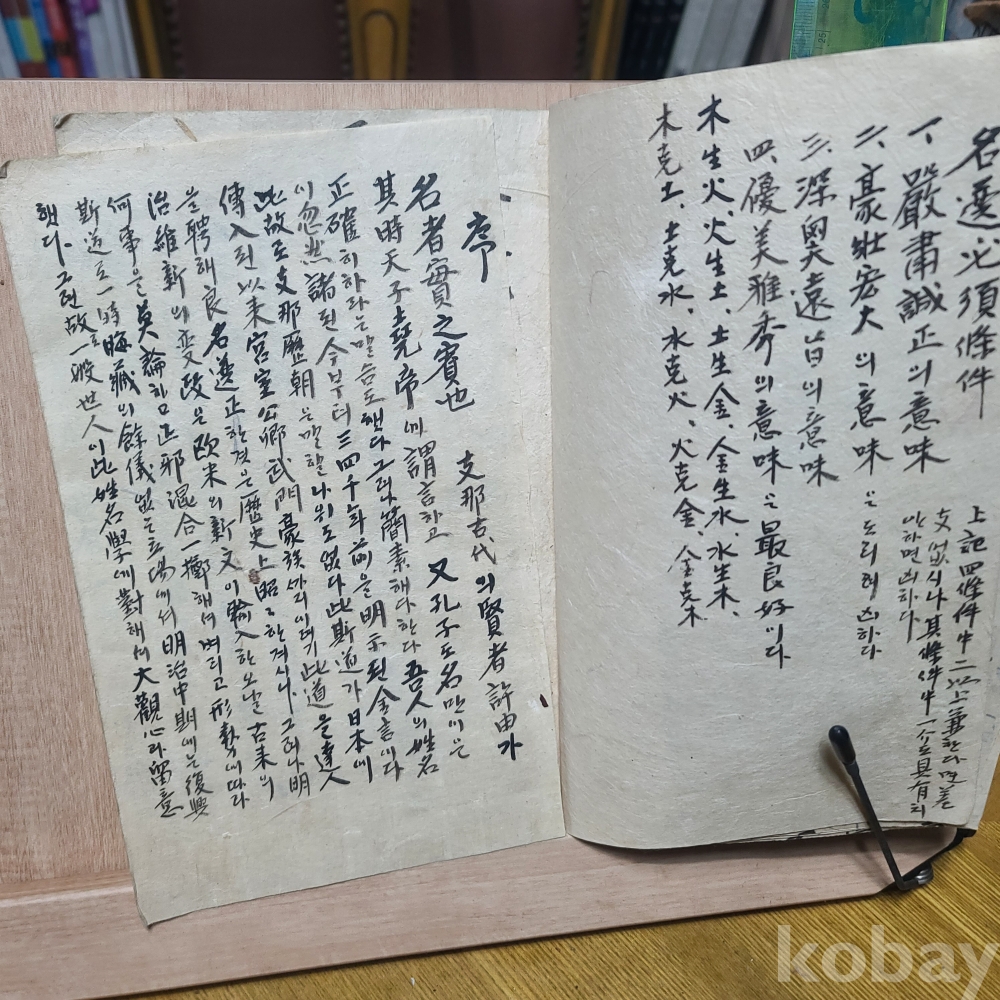 名選必須條件
一、嚴肅誠正의意味
二、豪壯宏大의意味는도리혀凶하다
三、深奧遠旨의意味
四、優美雅秀의意味는最良好이다
上記四條件中二以上兼한다면差
支없시나其條件中一个도具有치
안하면凶하다
木生火、火生土、土生金、金生水、水生木、
木克土、土克水、水克火、火克金、金克木
序、
名者實之賓也 支那古代의賢者許由가
其時天子土堯帝에謂言하고 又孔子도名만이은
正確히하라는말슴도햇다그러簡素해다한다 吾人의姓名
이忽然諸된今부터三四千年前을明示된金言이다
此故로支那歷朝은말할나위도없다此斯道가日本에
傳入된以來宮室公卿武門豪族까지이르기此道를達人
을聘해良名選正한것은歷史上昭々한거시니그러나明
治維新의変政은欧米의新文이輸入한오날古来의
何事을莫論하고正邪混合一擲해서버리고形勢에따라
斯道로一時晦藏의餘儀없는立場에서明治中期에는復興
햇다、그런故로一般世人이此姓名學에對해서大觀心과留意
kobay